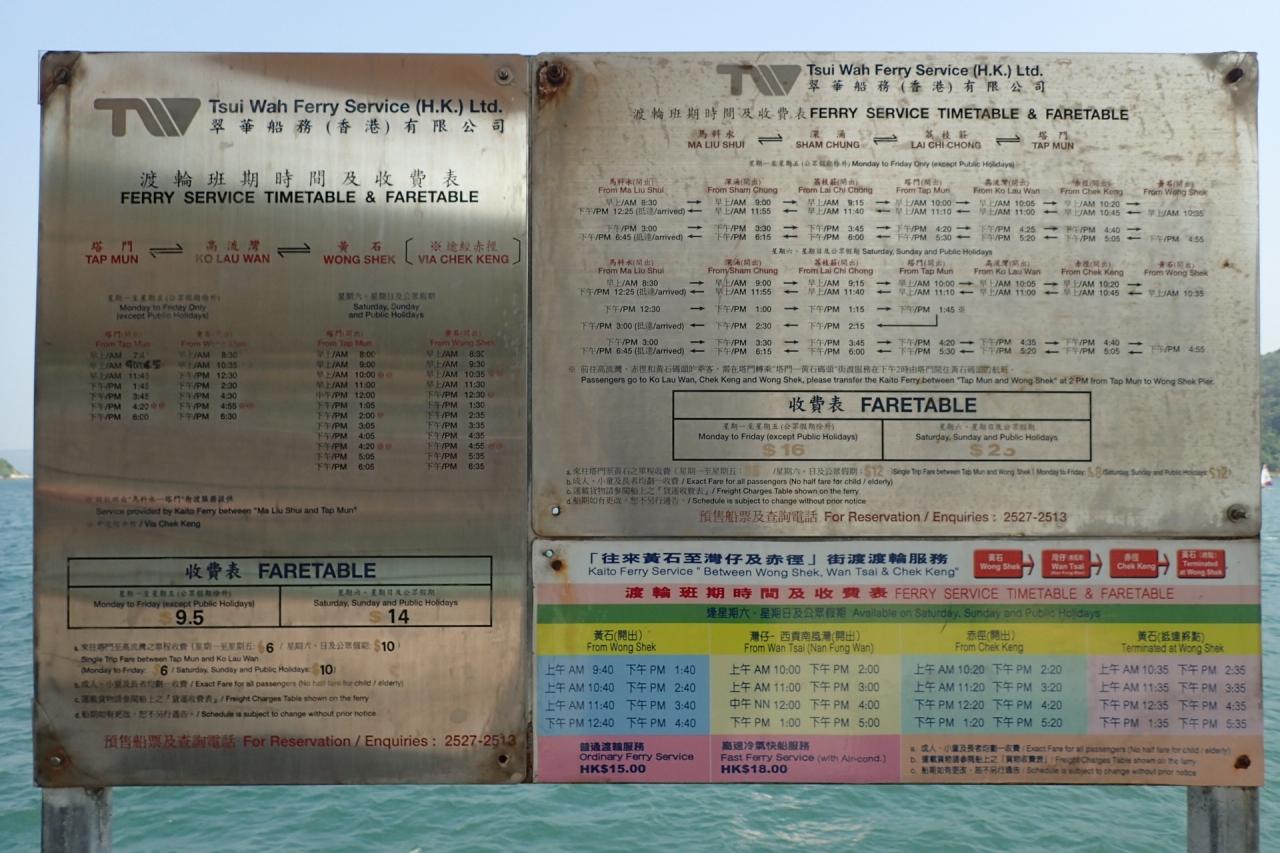 TW
Tsui Wah Ferry Service (H.K.) Ltd.
翠華船務(香港)有限公司
渡輪班期時間及收費表
FERRY SERVICE TIMETABLE & FARETABLE
塔門 高流灣 黃石 ※途經赤徑
TAP MUN KO LAU WAN WONG SHEK VIA CHEK KENG
星期一至星期五(公眾假期除外) 星期六、星期日及公眾假期
Monday to Friday Only Saturday, Sunday
(except Public Holidays) and Public Holidays
塔門(開出) 黃石(開出) 塔門(開出) 黃石(開出)
From Tap Mun From Wong Shek From Tap Mun From Wong Shek
早上/AM 早上/AM 8:30 早上/AM 8:00 早上/AM 8:30
早上/AM 早上/AM 10:35 早上/AM 9:00 早上/AM 9:30
早上/AM 11:45 下午/PM 12:30 早上/AM 10:00 早上/AM 10:35
下午/PM 1:45 下午/PM 2:30 中午/PM 12:00 下午/PM 12:30
下午/PM 3:45 下午/PM 4:30 下午/PM 1:05 下午/PM 1:30
下午/PM 4:20 下午/PM 4:55 下午/PM 2:00 下午/PM 2:35
下午/PM 6:00 下午/PM 6:30 下午/PM 3:05 下午/PM 3:35
下午/PM 4:05 下午/PM 4:35
下午/PM 4:20 下午/PM 4:55
下午/PM 5:05 下午/PM 5:35
下午/PM 6:05 下午/PM 6:35
Service provided by Kaito Ferry between "Ma Liu Shui and Tap Mun"
/ Via Chek Keng
收費表 FARETABLE
星期一至星期五(公眾假期除外) 星期六、星期日及公眾假期
Monday to Friday (except Public Holidays) Saturday, Sunday and Public Holidays
$9.5 $14
a. 來往塔門至高流灣之單程收費 (星期一至星期五: $6 / 星期六、日及公眾假期: $10)
Single Trip Fare between Tap Mun and Ko Lau Wan
(Monday to Friday: $6 / Saturday, Sunday and Public Holidays: $10)
b. 成人、小童及長者均劃一收費 / Exact Fare for all passengers (No half fare for child / elderly)
c. 運載貨物請參閱船上之「貨運收費表」/ Freight Charges Table shown on the ferry
d. 船期如有更改，恕不另行通告。/ Schedule is subject to change without prior notice
預售船票及查詢電話 For Reservation / Enquiries : 2527-2513
TW
Tsui Wah Ferry Service (H.K.) Ltd.
翠華船務(香港)有限公司
渡輪班期時間及收費表 FERRY SERVICE TIMETABLE & FARETABLE
馬料水 深涌 荔枝莊 塔門
MA LIU SHUI SHAM CHUNG LAI CHI CHONG TAP MUN
星期一至星期五(公眾假期除外) Monday to Friday Only (except Public Holidays)
馬料水(開出) 深涌(開出) 荔枝莊(開出) 塔門(開出) 高流灣(開出) 赤徑(開出) 黃石(開出)
From Ma Liu Shui From Sham Chung From Lai Chi Chong From Tap Mun From Ko Lau Wan From Chek Keng From Wong Shek
早上/AM 8:30 → 早上/AM 9:00 → 早上/AM 9:15 → 早上/AM 10:00 → 早上/AM 10:05 → 早上/AM 10:20 →
下午/PM 12:25 (抵達/arrived) ← 早上/AM 11:55 ← 早上/AM 11:40 ← 早上/AM 11:10 ← 早上/AM 11:00 ← 早上/AM 10:45 ← 早上/AM 10:35
下午/PM 3:00 → 下午/PM 3:30 → 下午/PM 3:45 → 下午/PM 4:20 → 下午/PM 4:25 → 下午/PM 4:40 →
下午/PM 6:45 (抵達/arrived) ← 下午/PM 6:15 ← 下午/PM 6:00 ← 下午/PM 5:30 ← 下午/PM 5:20 ← 下午/PM 5:05 ← 下午/PM 4:55
星期六、星期日及公眾假期 Saturday, Sunday and Public Holidays
馬料水(開出) 深涌(開出) 荔枝莊(開出) 塔門(開出) 高流灣(開出) 赤徑(開出) 黃石(開出)
From Ma Liu Shui From Sham Chung From Lai Chi Chong From Tap Mun From Ko Lau Wan From Chek Keng From Wong Shek
早上/AM 8:30 → 早上/AM 9:00 → 早上/AM 9:15 → 早上/AM 10:00 → 早上/AM 10:05 → 早上/AM 10:20 →
下午/PM 12:25 (抵達/arrived) ← 早上/AM 11:55 ← 早上/AM 11:40 ← 早上/AM 11:10 ← 早上/AM 11:00 ← 早上/AM 10:45 ← 早上/AM 10:35
下午/PM 12:30 → 下午/PM 1:00 → 下午/PM 1:15 → 下午/PM 1:45 ※
下午/PM 3:00 (抵達/arrived) ← 下午/PM 2:30 ← 下午/PM 2:15
下午/PM 3:00 → 下午/PM 3:30 → 下午/PM 3:45 → 下午/PM 4:20 → 下午/PM 4:35 → 下午/PM 4:40 →
下午/PM 6:45 (抵達/arrived) ← 下午/PM 6:15 ← 下午/PM 6:00 ← 下午/PM 5:30 ← 下午/PM 5:20 ← 下午/PM 5:05 ← 下午/PM 4:55
※ 前往高流灣、赤徑和黃石碼頭的乘客，需在塔門轉乘"塔門—黃石碼頭"街渡服務在下午2時由塔門開往黃石碼頭的航班
Passengers go to Ko Lau Wan, Chek Keng and Wong Shek, please transfer the Kaito Ferry between "Tap Mun and Wong Shek" at 2 PM from Tap Mun to Wong Shek Pier.
收費表 FARETABLE
星期一至星期五(公眾假期除外) 星期六、星期日及公眾假期
Monday to Friday (except Public Holidays) Saturday, Sunday and Public Holidays
$16
a. 來往塔門至黃石之單程收費 (星期一至星期五: $8 /星期六、日及公眾假期: $12 )Single Trip Fare between Tap Mun and Wong Shek ( Monday to Friday: $8 /Saturday, Sunday and Public Holidays $12)
b. 成人、小童及長者均劃一收費 / Exact Fare for all passengers (No half fare for child / elderly)
c. 運載貨物請參閱船上之「貨運收費表」/ Freight Charges Table shown on the ferry
d. 船期如有更改，恕不另行通告。/ Schedule is subject to change without prior notice
預售船票及查詢電話 For Reservation / Enquiries : 2527-2513
「往來黃石至灣仔及赤徑」街渡渡輪服務
Kaito Ferry Service " Between Wong Shek, Wan Tsai & Chek Keng"
黃石 灣仔(南風灣) 赤徑 黃石(終點)
Wong Shek Wan Tsai (Nan Fung Wan) Chek Keng Terminated at Wong Shek
渡輪班期時間及收費表 FERRY SERVICE TIMETABLE & FARETABLE
逢星期六、星期日及公眾假期 Available on Saturday, Sunday and Public Holidays
黃石(開出) 灣仔-西貢南風灣(開出) 赤徑(開出) 黃石(抵達終點)
From Wong Shek From Wan Tsai (Nan Fung Wan) From Chek Keng Terminated at Wong Shek
上午 AM 9:40 下午 PM 1:40 上午 AM 10:00 下午 PM 2:00 上午 AM 10:20 下午 PM 2:20 上午 AM 10:35 下午 PM 2:35
上午 AM 10:40 下午 PM 2:40 上午 AM 11:00 下午 PM 3:00 上午 AM 11:20 下午 PM 3:20 上午 AM 11:35 下午 PM 3:35
上午 AM 11:40 下午 PM 3:40 中午 NN 12:00 下午 PM 4:00 下午 PM 12:20 下午 PM 4:20 下午 PM 12:35 下午 PM 4:35
下午 PM 12:40 下午 PM 4:40 下午 PM 1:00 下午 PM 5:00 下午 PM 1:20 下午 PM 5:20 下午 PM 1:35 下午 PM 5:35
普通渡輪服務 高速冷氣快船服務
Ordinary Ferry Service Fast Ferry Service (with Air-cond.)
HK$15.00 HK$18.00
a. 成人、小童及長者均劃一收費 / Exact Fare for all passengers (No half fare for child / elderly)
b. 運載貨物請參閱船上之「貨物收費表」/ Freight Charges Table shown on the ferry
c. 船期如有更改，恕不另行通告 / Schedule is subject to change without prior notice